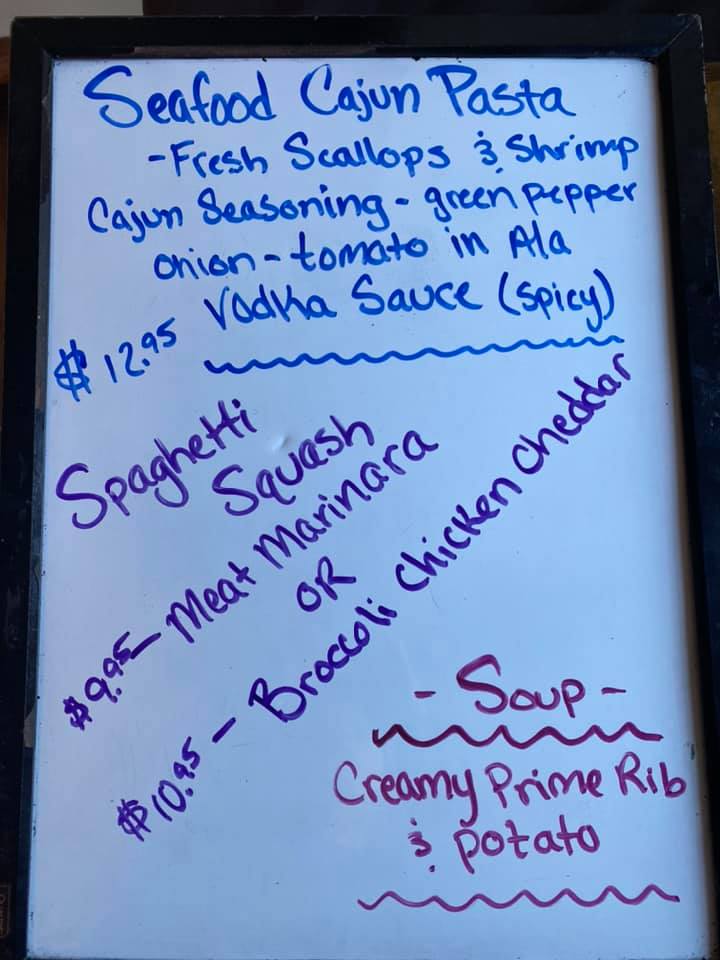 Seafood Cajun Pasta
- Fresh Scallops & Shrimp
Cajun Seasoning - green pepper
onion - tomato in Ala
Vodka Sauce (spicy)
$12.95
Spaghetti
Squash
$9.95 - Meat Marinara
OR
$10.95 - Broccoli chicken cheddar
- Soup -
Creamy Prime Rib
& potato